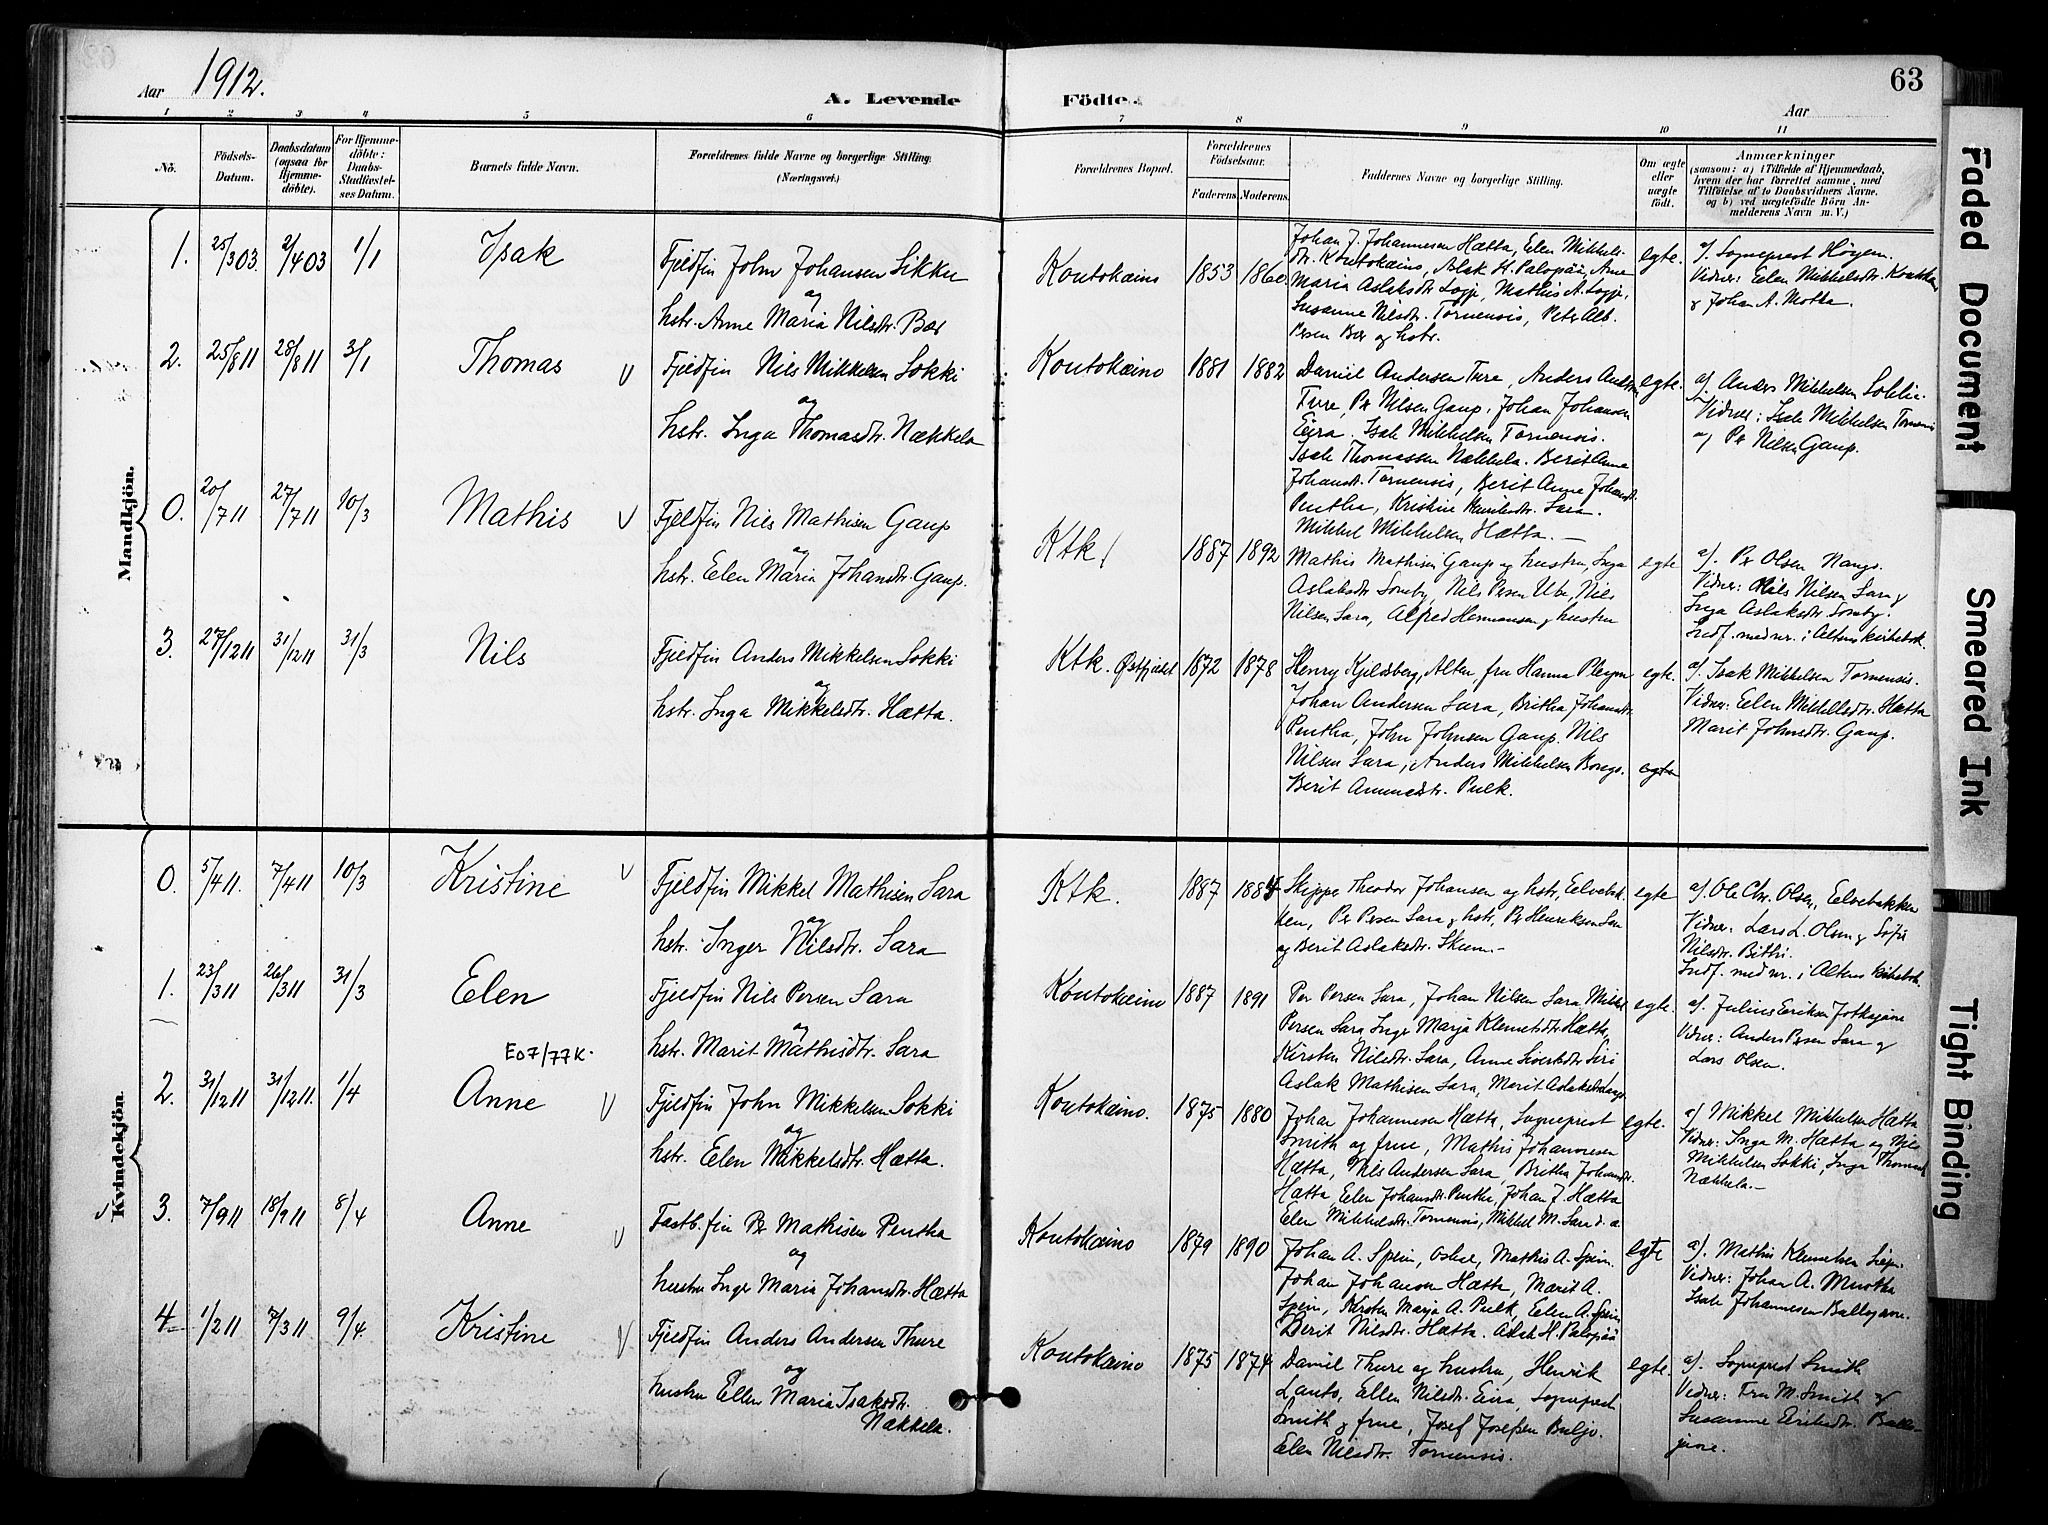 Aar 1912.
A. Levende Födte.
63
Aar
1 2 3 4 5 6 7 8 9 10 11
No.
Födsels-
Datum.
Daabsdatum
(ogsaa for
Hjemme-
döbte).
For Hjemme-
döbte:
Daabs-
Stadfæstel-
ses Datum.
Barnets fulde Navn.
Forældrenes fulde Navne og borgerlige Stilling.
(Næringsvei.)
Forældrenes Bopæl.
Forældrenes
Födselsaar.
Faderens.
Moderens.
Faddernes Navne og borgerlige Stilling.
Om ægte
eller
uægte
födt.
Anmærkninger
(saasom: a) i Tilfælde af Hjemmedaab,
hvem der har forrettet samme, med
Tilföielse af to Daabsvidners Navne,
og b) ved uægtefödte Börn An-
melderens Navn m. V.)
Mandkjön.
1. 25/3 03. 2/4 03 1/1 Isak
Fjeldfin John Johansen Sikku
og
hstr. Anne Maria Nilsdtr. Bær
Koutokæino 1853 1860.
Johan J. Johannesen Hætta, Eelen Mikkels-
dtr. Koutokæino, Aslak H. Palopää, Ane
Maria Aslaksdtr Logje, Mathis A. Logje,
Susanne Nilsdtr. Tornensis, Peter Alb.
Persen Bær og hstr.
egte.
a). Sogneprest Höyem.
Vidner: Eelen Mikkelsdtr.
& Johan A. Motta.
2. 25/8 11 28/8 11 3/1 Thomas V
Fjeldfin Nils Mikkelsen Sokki
og
hstr. Inga Thomasdtr. Nækkela
Koutokæino 1881 1882
Daniel Andersen Ture, Anders Andersen
Ture, Per Nilsen Gaup, Johan Johansen
Eira. Isak Mikkelsen Tornensis.
Isak Thomassen Nækkela. Berit Anne
Johansdtr. Tornensis, Berit Anne Johansdtr.
Pentha, Kristine Sara.
Mikkel Mikkelsen Hætta. —
egte.
a). Anders Mikkelsen Sokki.
Vidner: Isak Mikkelsen Tornensis
og Per Nilsen Gaup.
0. 20/7 11 27/7 11 10/3 Mathis V
Fjeldfin Nils Mathisen Gaup
og
hstr. Eelen Maria Johansdtr. Gaup.
Ktk. 1887 1892
Mathis Mathisen Gaup og hustru, Inga
Aslaksdtr Somby, Nils Persen Utse, Nils
Nilsen Sara, Alfred Hermansen & hustru
egte
a). Per Olsen Nango.
Vidner: Nils Nilsen Sara &
Inga Aslaksdtr. Somby.
Indf. med nr. i Altens kirkebok.
3. 27/12 11 31/12 11 31/3 Nils
Fjeldfin Anders Mikkelsen Sokki
og
hstr. Inga Mikkelsdtr. Hætta.
Ktk. Østfjeldet 1872 1878
Henry Kjeldsberg, Alten, fru Hanna Pleym
Johan Andersen Sara, Britha Johansdtr.
Pentha, John Johnsen Gaup. Nils
Nilsen Sara, Anders Mikkelsen Bongo.
Berit Ammondsdtr. Pulk.
egte.
egte
a). Isak Mikkelsen Tornensis.
Vidner: Eelen Mikkelsdtr. Hætta
Marit Johnsdtr. Gaup.
Kvindekjön.
0. 5/4 11. 7/4 11 10/3 Kristine V
Fjeldfin Mikkel Mathisen Sara
og
hstr. Inger Nilsdtr. Sara
Ktk. 1887 1884
Skipper Theodor Johansen og hstr, Eelvebak-
ken, Per Persen Sara & hstr, Per Henriksen Sara
og Berit Aslaksdtr. Skum. —
egte
a). Ole Chr. Olsen, Eelvebakken
Vidner: Lars L. Olsen & Sofie
Nilsdtr. Bitti.
Indf. med nr. i Altens kirkebok.
1. 23/3 11 26/3 11 31/3 Eelen
Fjeldfin Nils Persen Sara
og
hstr. Marit Mathisdtr. Sara
Koutokæino 1887 1891
Per Persen Sara, Johan Nilsen Sara, Mikkel
Persen Sara, Inger Marja Klemetsdtr. Hætta,
Kirsten Nilsdtr. Sara, Anne Sivertsdtr. Siri
Aslak Mathisen Sara, Marit Aslaksdtr
egte.
a). Julius Eriksen Jotkajavre
Vidner: Anders Persen Sara &
Lars Olsen.
E07/77K.
2. 31/12 11 31/12 11. 1/4 Anne V
Fjeldfin John Mikkelsen Sokki
og
hstr. Eelen Mikkelsdtr. Hætta.
Koutokæino. 1875 1880
Johan Johannesen Hætta, Sogneprest
Smith og frue, Mathis Johannesen
Hætta, Nils Andersen Sara, Britha Johansdtr.
Hætta, Eelen Johansdtr. Pentha, Johan J. Hætta
Elen Mikkelsdtr. Tornensis, Mikkel M. Sara d. a.
egte.
a) Mikkel Mikkelsen Hætta
Vidner: Inga M. Hætta og Nils
Mikkelsen Sokki, Inga Thomasd.
Nækkela. —
V 3. 7/9 11 18/9 11 8/4 Anne V
Fastb. fin Per Mathisen Pentha
og
hustru Inger Maria Johansdtr. Hætta
Koutokæino 1879 1890
Johan A. Spein, Oskar, Mathis A. Spein.
Johan Johansen Hætta, Marit A.
Spein, Kirsten Marja A. Pulk, Eelen A. Spein
Berit Nilsdtr. Hætta. Aslak H. Palopää
egte
a). Mathis Klemetsen
Vidner: Johan A. Muotka
Isak Johannesen Ballojavre.
4. 1/2 11 7/3 11 9/4. Kristine V
Fjeldfin Anders Andersen Thure
og
hustru Ellen Maria Isaksdtr.
Nækkela.
Koutokæino 1875 1874
Daniel Thure og hustru, Henrik
Lanto, Ellen Nilsdtr. Eira, Sogneprest
Smith & frue, Josef Josefsen Buljo.
Elen Nilsdtr. Tornensis.
egte.
a). Sogneprest Smith
Vidner: Fru M. Smith &
Susanne Eriksdtr. Ballo-
javre.
Faded Document
Smeared Ink
Tight Binding